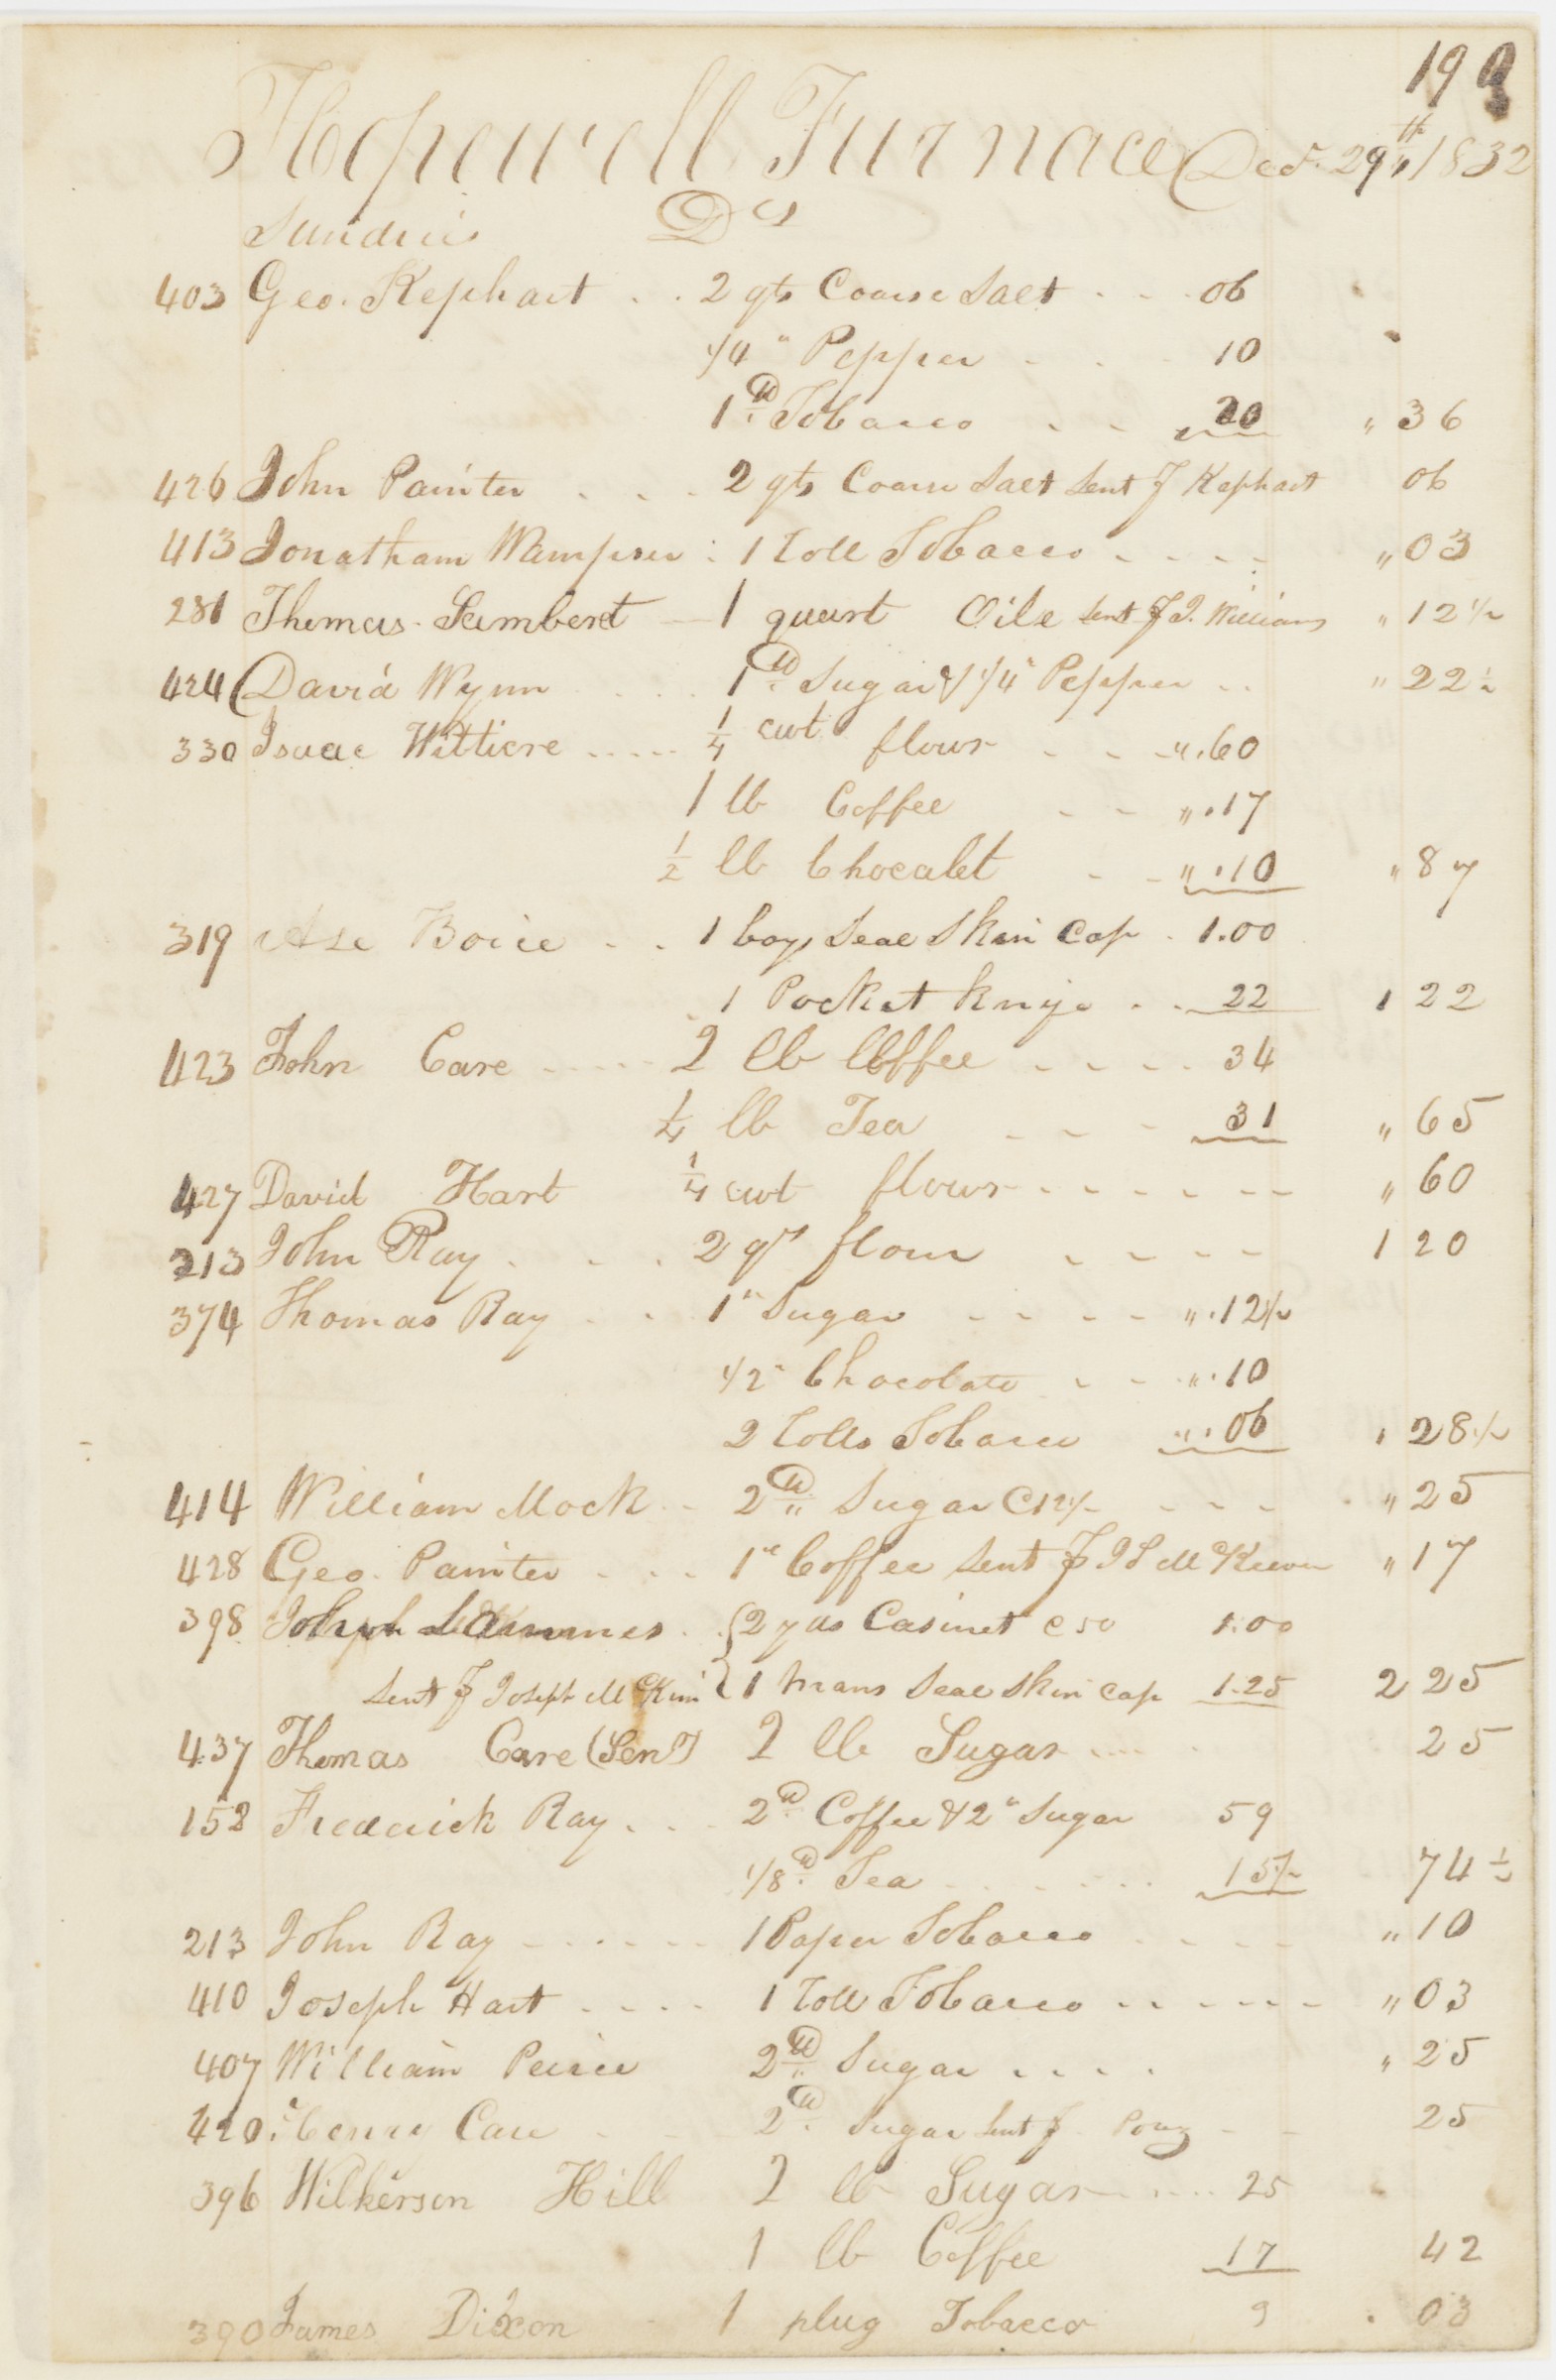 199
Hopewell Furnace Decr. 29th, 1832
Sundries Drs
403 Geo. Kephart . . 2 qts Coarse Salt . . . 06
1/4 " Pepper . . . 10
1 lb Tobacco . . 20 " 36
426 John Painter . . . 2 qts Coarse Salt Sent J Kephart 06
413 Jonatham Wampser : 1 Roll Tobacco . . . . " 03
281 Thomas Lambert — 1 quart Oile Sent J J. Williams " 12 1/2
424 David Wynn . . . . 1 lb Sugar & 1/4 " Pepper . . " 22 1/2
330 Isaac Wittiere ..... 1/4 cwt flour - - - " .60
1 lb Coffee - - " .17
1/2 lb Chocalet - - " .10 " 87
319 Ase Boice . . 1 boys Seal Skin Cap . 1.00
1 Pocket Knife . . 22 1 22
423 John Care ..... 2 lb Coffee . . . . 34
1/4 lb Tea - - - 31 " 65
427 David Hart 1/4 cwt flour - - - - - - " 60
213 John Ray . . . 2 qrs flour - - - - 1 20
374 Thomas Ray . . 1 " Sugar - - - - " .12 1/2
1/2 " Chocolate - - " .10
2 Rolls Tobacco " .06 " 28 1/2
414 William Mock . - 2 lb " Sugar @ 12 1/2 - - - " 25
428 Geo. Painter . . . 1 " Coffee Sent J J S McKeever " 17
398 James . . { 2 yds Casinet @ 50 1.00
Sent J Joseph McKim } 1 Mans Seal Skin Cap 1.25 2 25
437 Thomas Care (Senr) 2 lb Sugar .... 25
152 Frederick Ray . . . 2 lb Coffee & 2 " Sugar 59
1/8 lb Tea . . . . . . 15 1/2 74 1/2
213 John Ray - . . . - - 1 Paper Tobacco . - - - " 10
410 Joseph Hart . . . . 1 Roll Tobacco . . . . - - " 03
407 William Peirce 2 lb Sugar . . . . " 25
420 Henry Care - - 2 lb Sugar Sent J - - 25
396 Wilkerson Hill 2 lb Sugar ..... 25
1 lb Coffee 17 42
390 James Dixon - 1 plug Tobacco 9 . 03